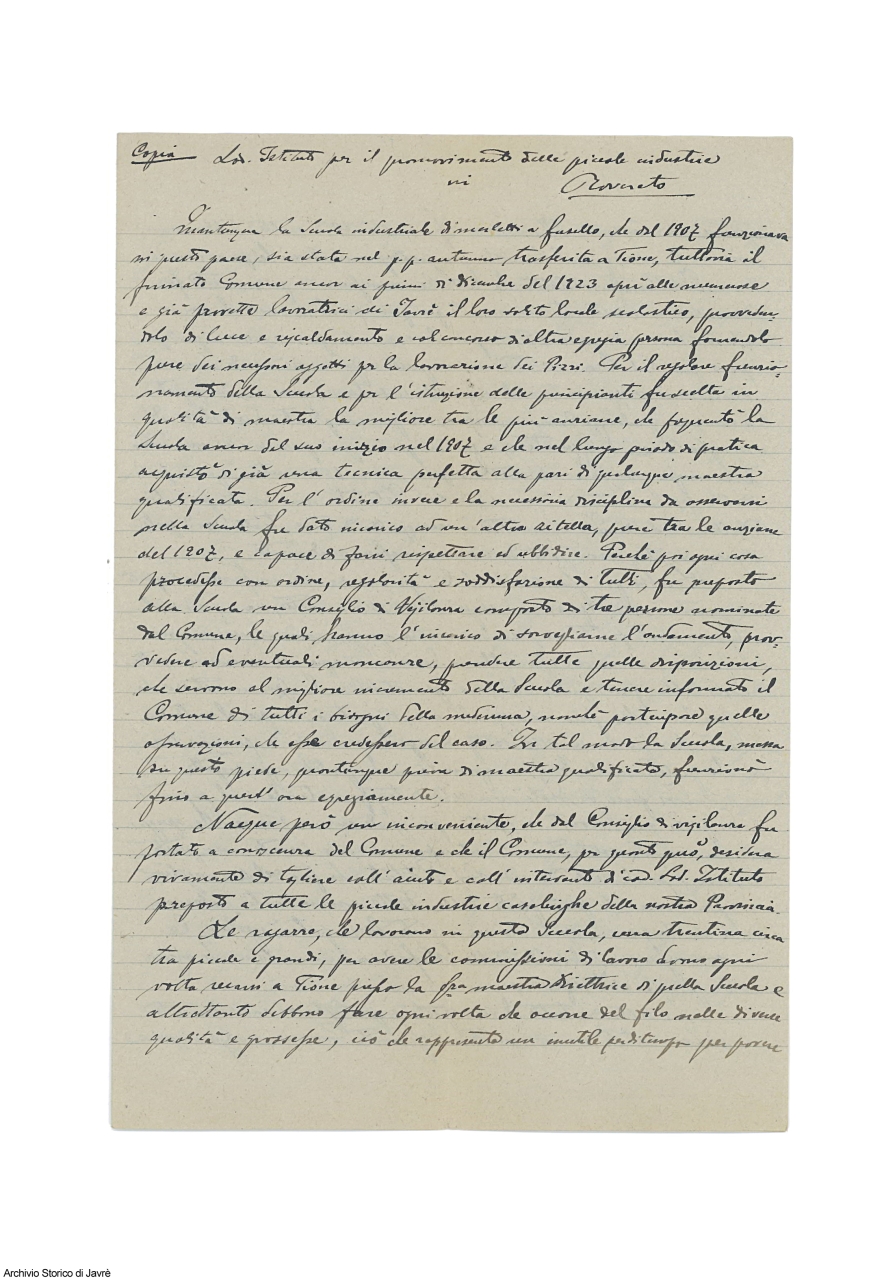 Copia Lod. Istituto per il promovimento delle piccole industrie
in Rovereto
Quantunque la Scuola industriale di merletti a fusello, che dal 1907 funzionava
in questo paese, sia stata nel p.p. autunno, trasferita a Tione, tuttavia il
firmato Comune ancor ai primi di dicembre del 1923 aprì alle numerose
e già provette lavoratrici di Javrè il loro solito locale scolastico, provveden-
dolo di luce e riscaldamento e col concorso di altra egregia persona fornendolo
pure dei necessari oggetti per la lavorazione dei Pizzi. Per il regolare funzio-
namento della Scuola e per l'istruzione delle principianti fu scelta in
qualità di maestra la migliore tra le più anziane, che frequentò la
Scuola ancor dal suo inizio nel 1907 e che nel lungo periodo di pratica
acquistò di già una tecnica perfetta alla pari di qualunque maestra
qualificata. Per l'ordine invece e la necessaria disciplina da osservarsi
nella Scuola fu dato incarico ad un'altra zitella, pure tra le anziane
del 1907, e capace di farsi rispettare ed ubbidire. Perchè poi ogni cosa
procedesse con ordine, regolarità e soddisfazione di tutti, fu preposto
alla Scuola un Consiglio di Vigilanza composto di tre persone nominate
dal Comune, le quali hanno l'incarico di sorvegliarne l'andamento, prov-
vedere ad eventuali mancanze, prendere tutte quelle disposizioni,
che servono al migliore incremento della Scuola e tenere informato il
Comune di tutti i bisogni della medesima, nonchè partecipare quelle
osservazioni, che esse credessero del caso. In tal modo la Scuola, messa
su questo piede, quantunque priva di maestra qualificata, funzionò
fino a quest'ora egregiamente.
Nacque però un inconveniente, che dal Consiglio di vigilanza fu
portato a conoscenza del Comune e che il Comune, per quanto può, desidera
vivamente di togliere coll'aiuto e coll'intervento di cod. Lod. Istituto
preposto a tutte le piccole industrie casalinghe della nostra Provincia.
Le ragazze, che lavorano in questa Scuola, una trentina circa
tra piccole e grandi, per avere le commissioni di lavoro devono ogni
volta recarsi a Tione presso la Sra maestra Direttrice di quella Scuola e
altrettanto debbono fare ogni volta che occorre del filo nelle diverse
qualità e grossezze, ciò che rappresenta un inutile perditempo per povere
Archivio Storico di Javrè